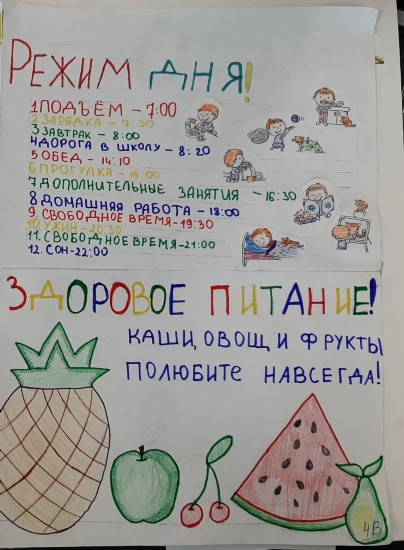 РЕЖИМ ДНЯ!
1 ПОДЪЁМ - 7:00
2 ЗАРЯДКА - 7:30
3 ЗАВТРАК - 8:00
4 ДОРОГА В ШКОЛУ - 8:20
5 ОБЕД - 14:10
6 ПРОГУЛКА - 15:00
7 ДОПОЛНИТЕЛЬНЫЕ ЗАНЯТИЯ - 16:30
8 ДОМАШНЯЯ РАБОТА - 18:00
9. СВОБОДНОЕ ВРЕМЯ - 19:30
10 УЖИН - 20:30
11. СВОБОДНОЕ ВРЕМЯ - 21:00
12. СОН - 22:00
ЗДОРОВОЕ ПИТАНИЕ!
КАШИ, ОВОЩИ ФРУКТЫ
ПОЛЮБИТЕ НАВСЕГДА!
4В